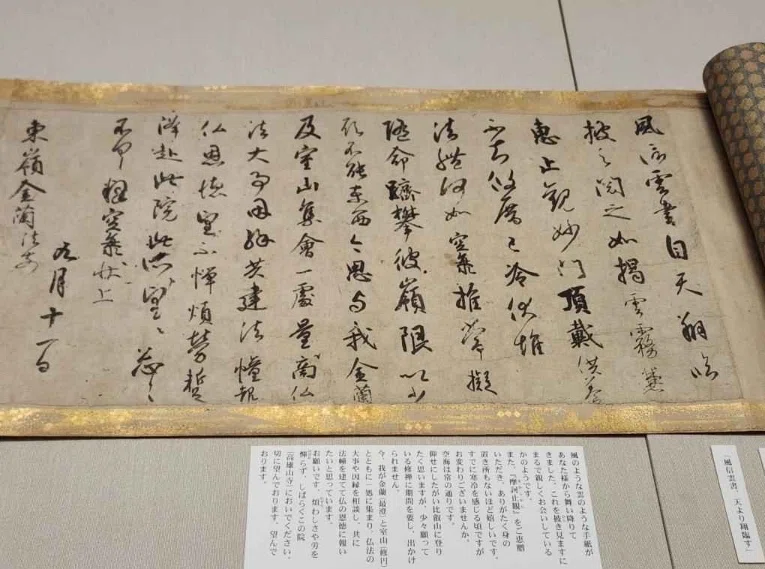 風信雲書自天翔臨
披之閲之如掲雲霧兼
恵止観妙門頂戴供養
不知攸厝已冷伏惟
法體何如空海推常擬
随命躋攀彼嶺限以少
願不能東西今思与我金蘭
及室山集會一處量商仏
法大事因縁共建法幢報
仏恩徳望不憚煩勞蹔
降赴此院此所望々々忩々
不具釋空海状上
九月十一日
東嶺金蘭法前
「風信雲書、天より翔臨す」
風のような雲のような手紙が
あなた様から舞い降りて
きました。これを披き見ますに
まるで親しくお会いしている
かのようです。
また、『摩訶止観』をご恵贈
いただき、ありがたく身の
置き所もないほど嬉しいです。
すでに寒冷を感じる頃ですが
お変わりございませんか。
空海は常の通りです。
仰せにしたがい比叡山に登り
たく思いますが、少々願って
いる修禅に期間を要し、出かけ
られません。
今、我が金蘭(最澄)と室山(修円)
とともに一処に集まり、仏法の
大事や因縁を相談し、共に
法幢を建てて仏の恩徳に報い
たいと思っています。
お願いです。煩わしさや労を
憚らず、しばらくこの院
(高雄山寺)においでください。
切に望んでおります。望んで
おります。